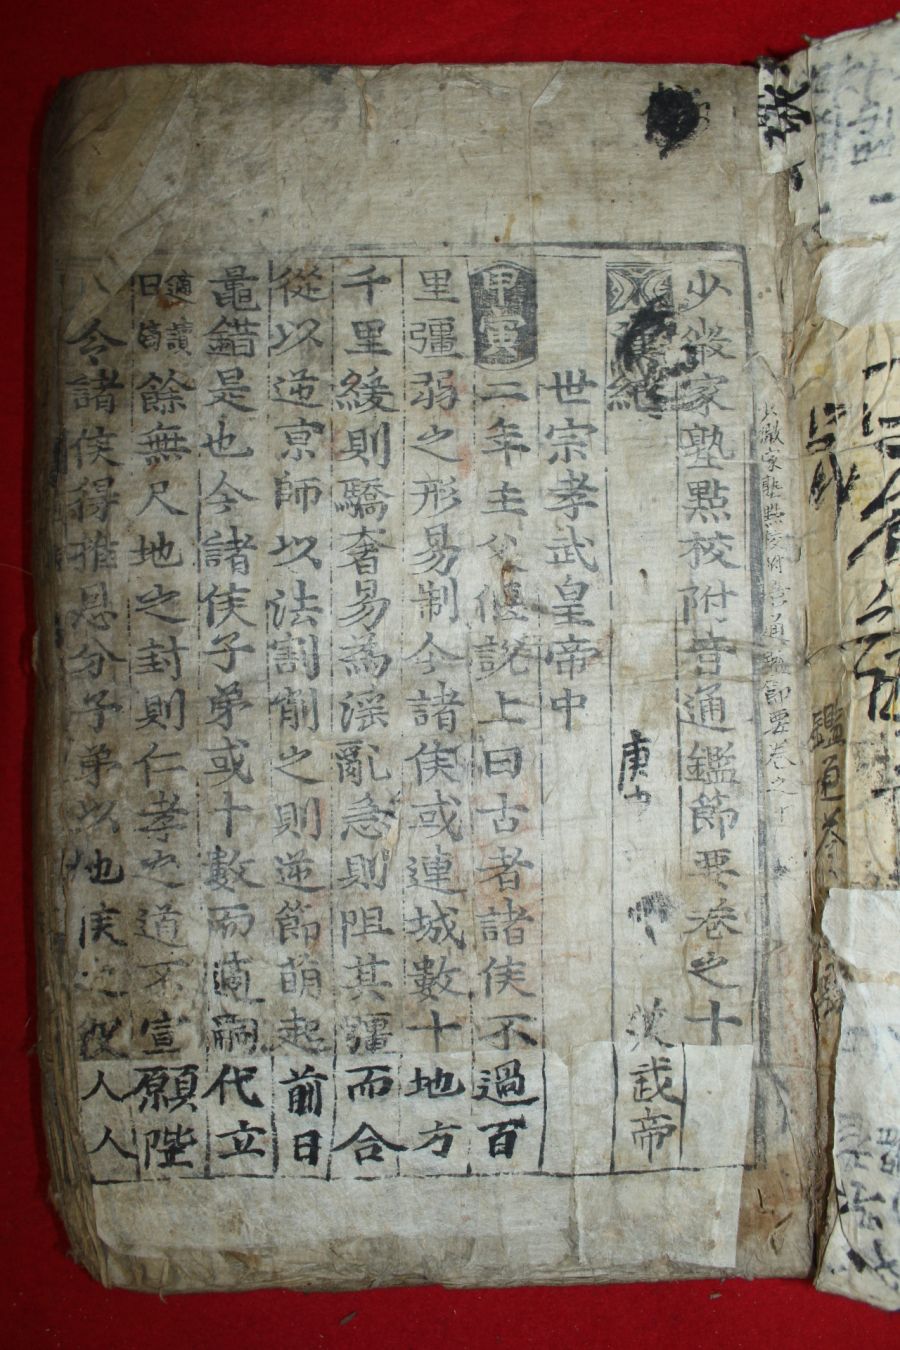 少微家塾點校附音通鑑節要卷之十
漢紀
漢武帝
世宗孝武皇帝中
甲寅 二年主父偃說上曰古者諸侯不過百
里彊弱之形易制今諸侯或連城數十地方
千里緩則驕奢易為淫亂急則阻其彊而合
從以逆京師以法割削之則逆節萌起前日
鼂錯是也今諸侯子弟或十數而適嗣代立
適讀曰嫡 餘無尺地之封則仁孝之道不宣願陛
下令諸侯得推恩分子弟以地侯之彼人人